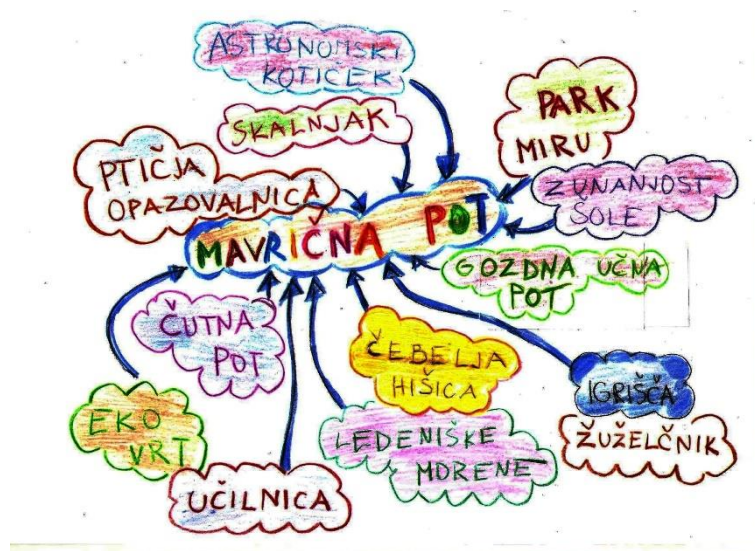 ASTRONOMSKI
KOTIČEK
SKALNJAK
PARK
MIRU
PTIČJA
OPAZOVALNICA
ZUNANJOST
ŠOLE
MAVRIČNA POT
GOZDNA UČNA
POT
ČUTNA
POT
ČEBELJA
HIŠICA
IGRIŠČA
EKO
VRT
LEDENIŠKE
MORENE
ŽUŽELČNIK
UČILNICA